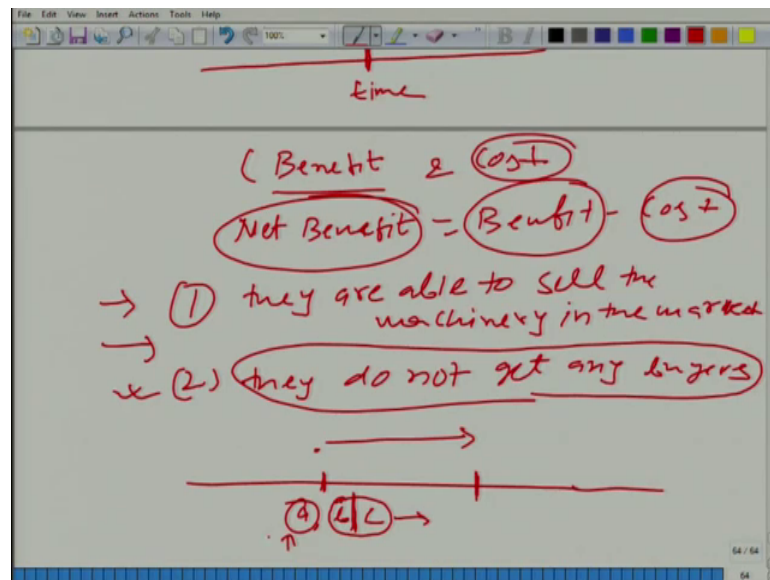 File Edit View Insert Actions Tools Help
100%
B I
time
( Benefit & Cost
Net Benefit = Benefit - Cost
→ (1) they are able to sell the
machinery in the market
→
(2) they do not get any buyers
a b c →
64 / 64
64